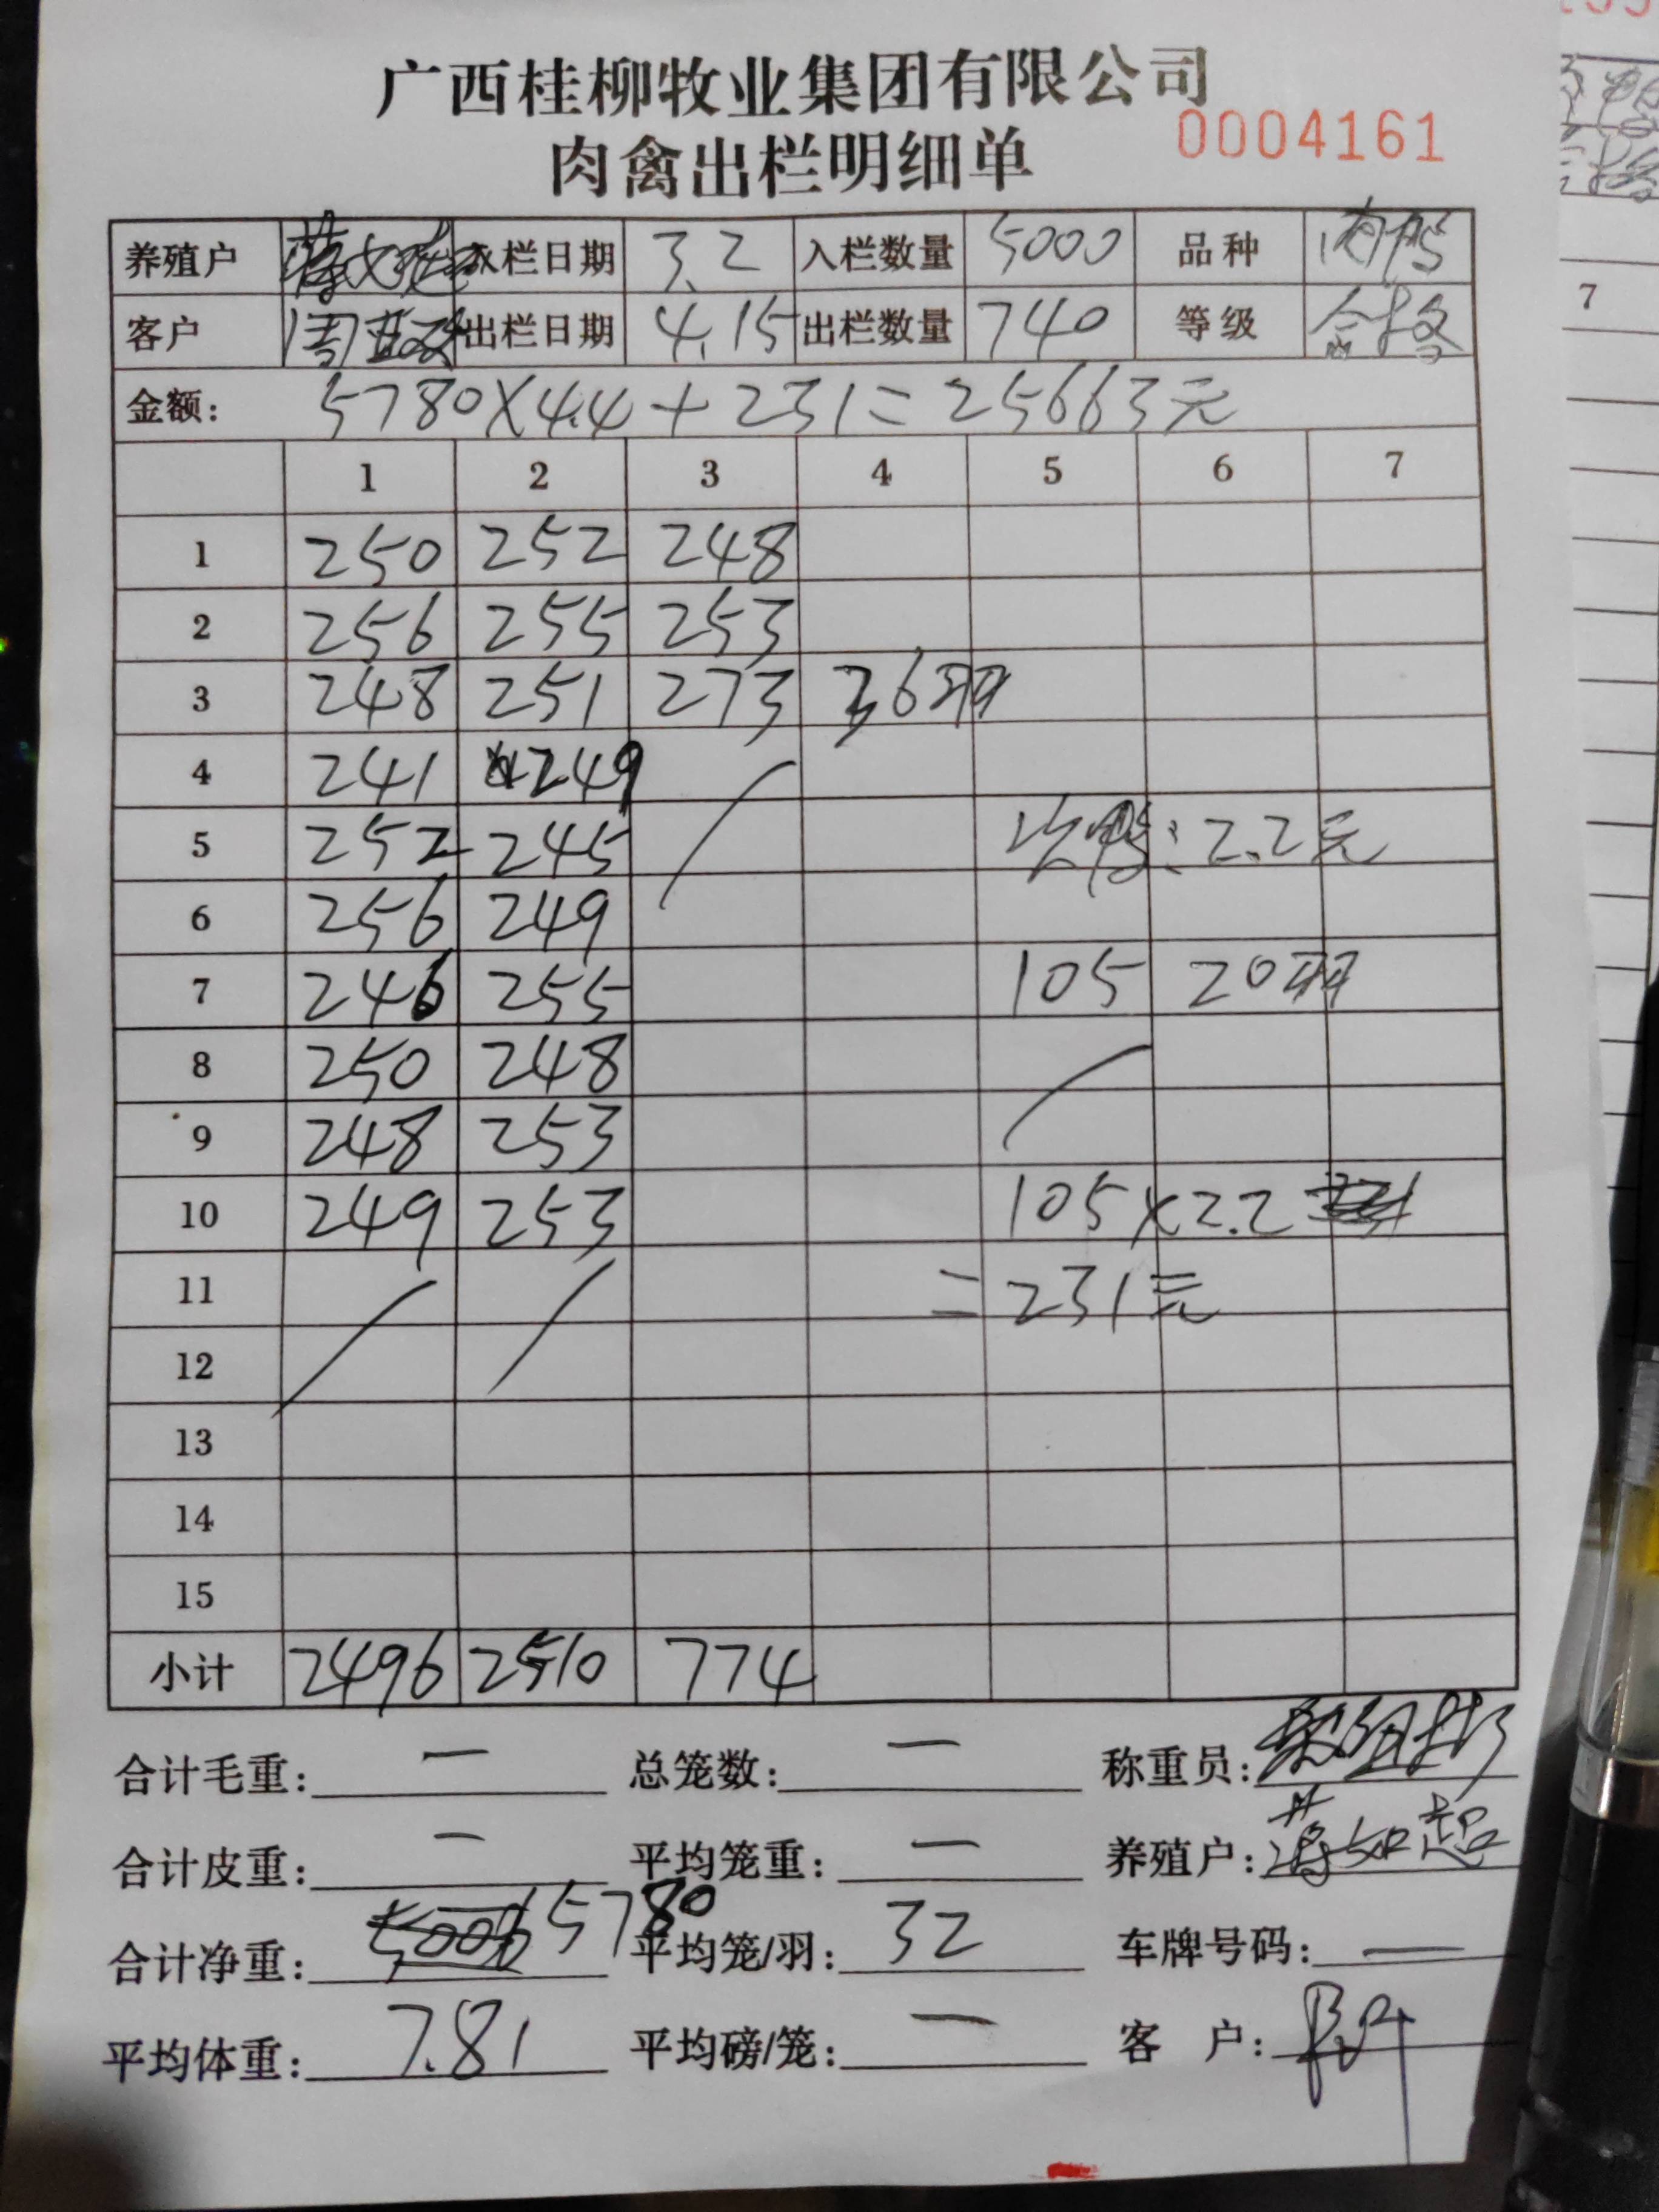 广西桂柳牧业集团有限公司
肉禽出栏明细单 0004161
养殖户 入栏日期 3.2 入栏数量 5000 品种 肉鸭
客户 出栏日期 4.15 出栏数量 740 等级 合格
金额: 5780×4.4+231=25663元
1 2 3 4 5 6 7
1 250 252 248
2 256 255 253
3 248 251 273 36羽
4 241 249
5 252 245 次鸭:2.2元
6 256 249
7 246 255 105 20羽
8 250 248
9 248 253
10 249 253 105×2.2
11 =231元
12
13
14
15
小计 2496 2510 774
合计毛重: — 总笼数: — 称重员:
合计皮重: — 平均笼重: — 养殖户: 蒋如超
合计净重: 5780 平均笼/羽: 32 车牌号码: —
平均体重: 7.81 平均磅/笼: — 客 户:
7